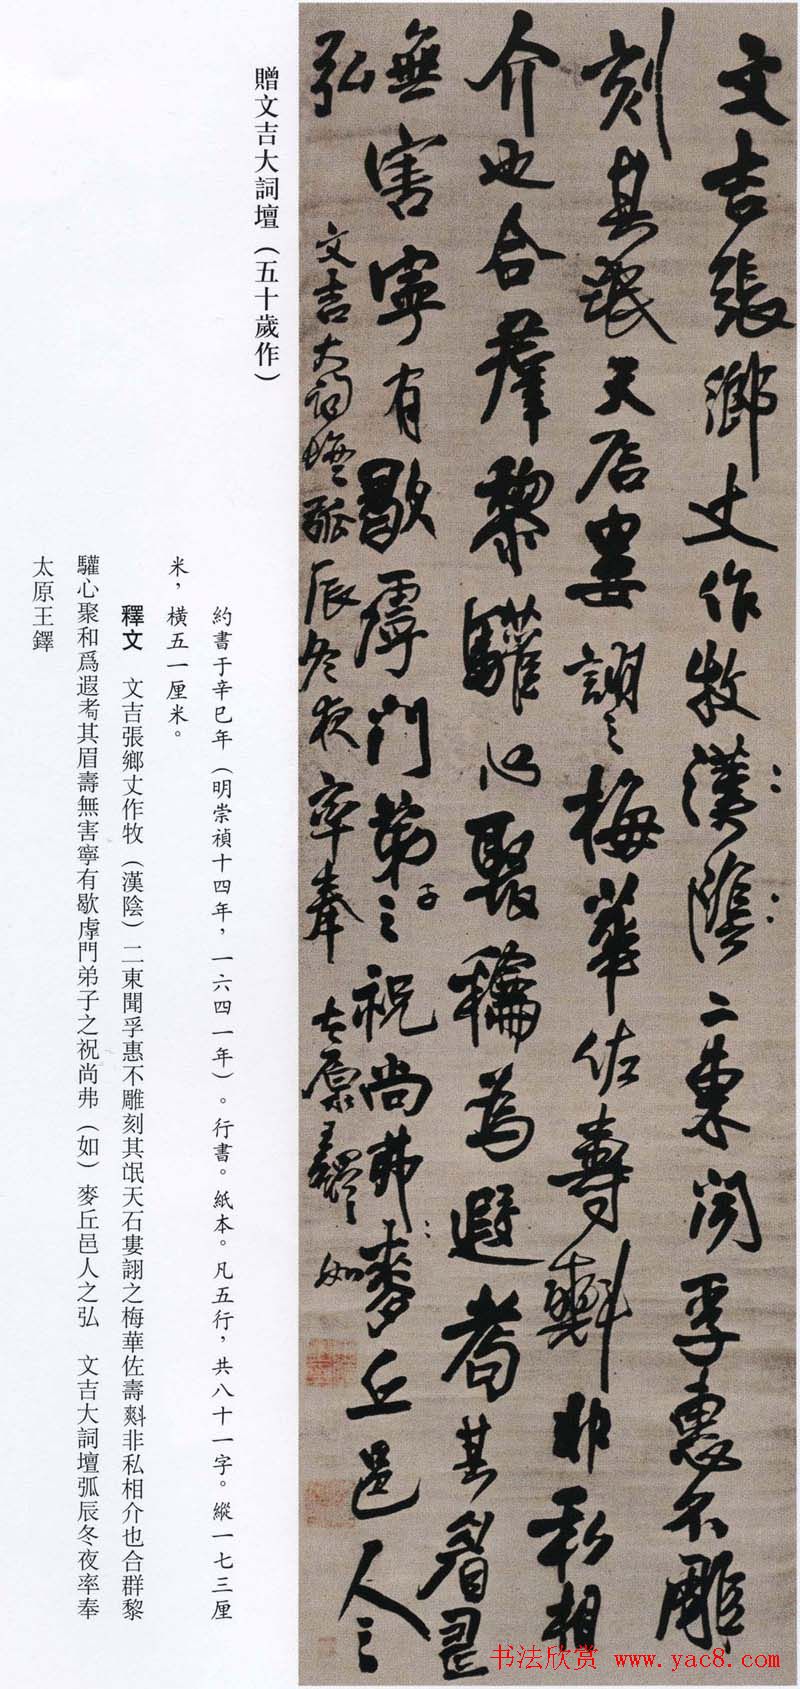 文吉張鄉丈作牧漢陰二東聞孚惠不雕
刻其氓天后婁詡之梅華佐壽斞非私相
介也合群黎驩心聚穐為遐耇其眉㞷
無害寧有歇虖門弟子之祝尚弗麥丘邑人之
弘 文吉大詞壇弧辰冬夜率奉 太原王鐸 如
贈文吉大詞壇（五十歲作）
約書于辛巳年（明崇禎十四年，一六四一年）。行書。紙本。凡五行，共八十一字。縱一七三厘
米，橫五一厘米。
釋文 文吉張鄉丈作牧（漢陰）二東聞孚惠不雕刻其氓天石婁詡之梅華佐壽斞非私相介也合群黎
驩心聚和爲遐耇其眉壽無害寧有歇虖門弟子之祝尚弗（如）麥丘邑人之弘 文吉大詞壇弧辰冬夜率奉
太原王鐸
书法欣赏 www.yac8.com